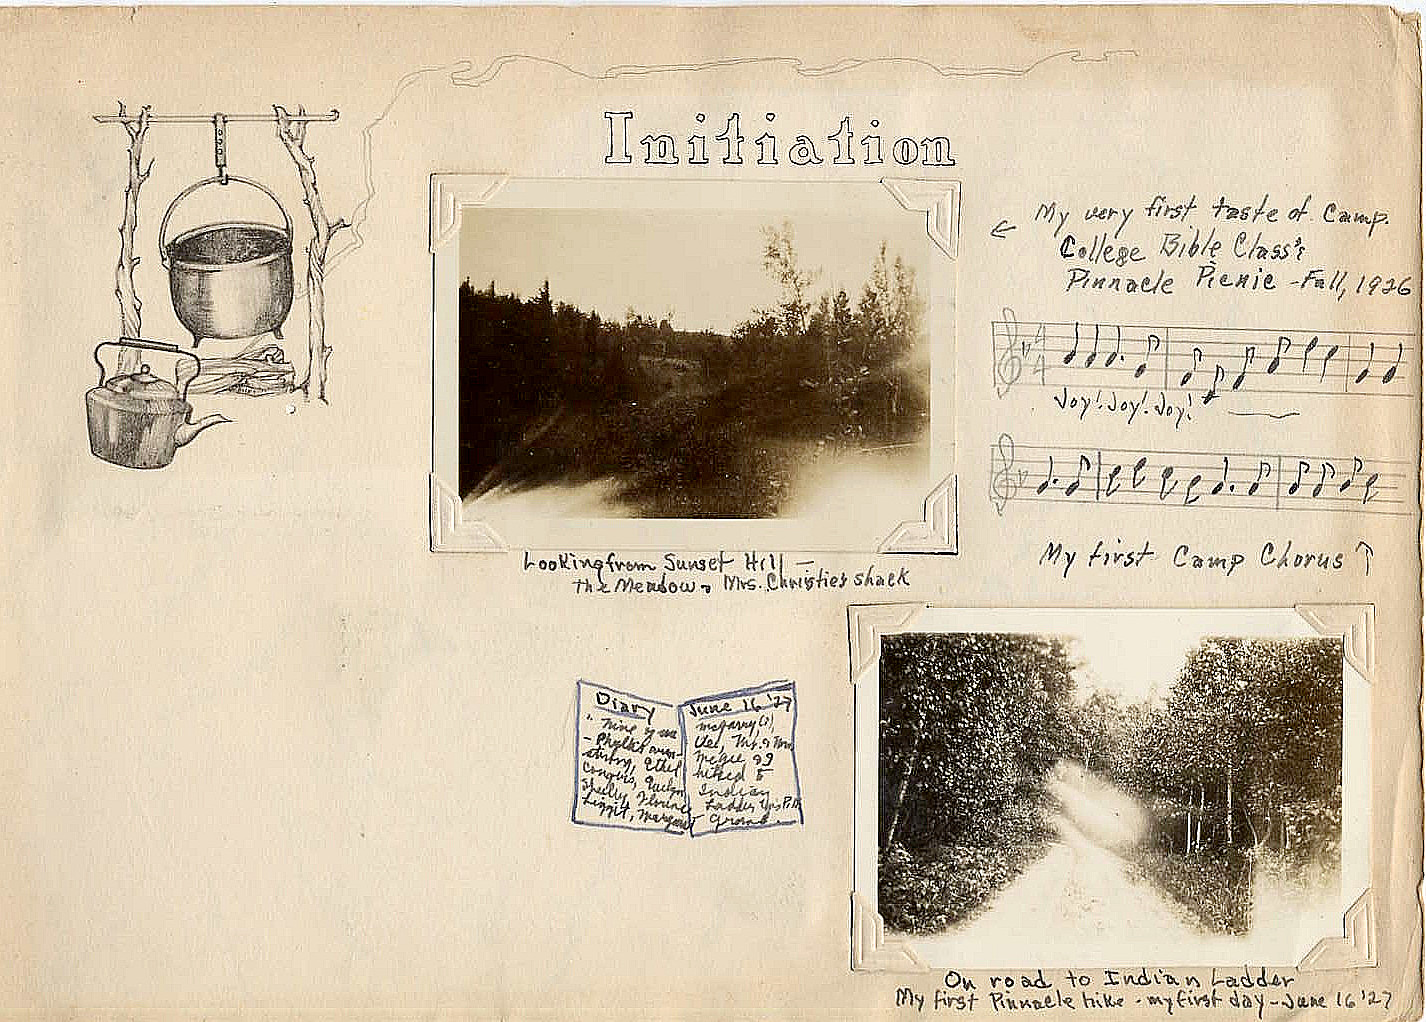 Initiation
← My very first taste of Camp.
College Bible Class's
Pinnacle Picnic - Fall, 1926
4
4
Joy! Joy! Joy!
My first Camp Chorus ↑
Looking from Sunset Hill -
the Meadow & Mrs. Christie's shack
Diary
" Nine of us
- Phyllis Arm-
strong, Ethel
Shelly, Florence
Liggit, Margaret
June 16 '27
hiked to
Indian
Ladder
On road to Indian Ladder
My first Pinnacle hike - my first day - June 16 '27